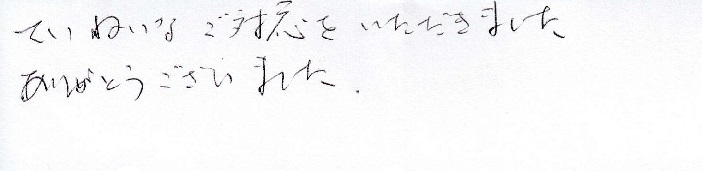 ていねいなご対応をいただきました
ありがとうございました.